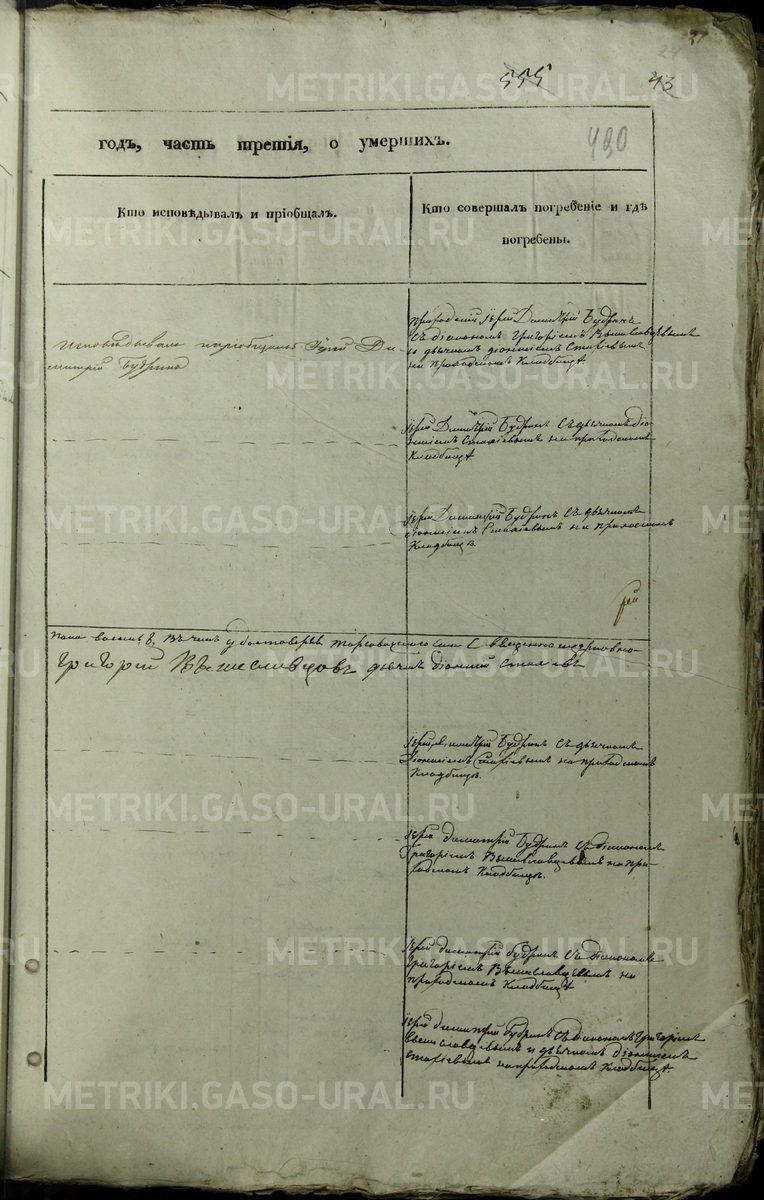 555
43
490
годъ, часть третія, о умершихъ.
Кто исповѣдывалъ и пріобщалъ.
Кто совершалъ погребеніе и гдѣ
погребены.
Исповѣдывалъ и пріобщалъ Іерей Ди-
митрій Будринъ
Приходскій Іерей Димитрій Будринъ
съ діакономъ Григоріемъ Вышеславцевымъ
и дьячкомъ Діонисіемъ
на приходскомъ кладбищѣ.
Іерей Димитрій Будринъ съ дьячкомъ Діо-
нисіемъ на приходскомъ
кладбищѣ
Іерей Димитрій Будринъ съ дьячкомъ
Діонисіемъ на приходскомъ
кладбищѣ.
рей
въ чемъ
Григорій Вышеславцовъ дьячекъ Діонисій
Іерей Димитрій Будринъ съ дьячкомъ
Діонисіемъ на приходскомъ
кладбищѣ.
Іерей Димитрій Будринъ съ діакономъ
Григоріемъ Вышеславцевымъ на при-
ходскомъ кладбищѣ.
Іерей Димитрій Будринъ съ діакономъ
Григоріемъ Вышеславцевымъ на
приходскомъ кладбищѣ
Іерей Димитрій Будринъ съ діакономъ Григоріемъ
Вышеславцевымъ и дьячкомъ Діонисіемъ
на приходскомъ кладбищѣ.
METRIKI.GASO-URAL.RU